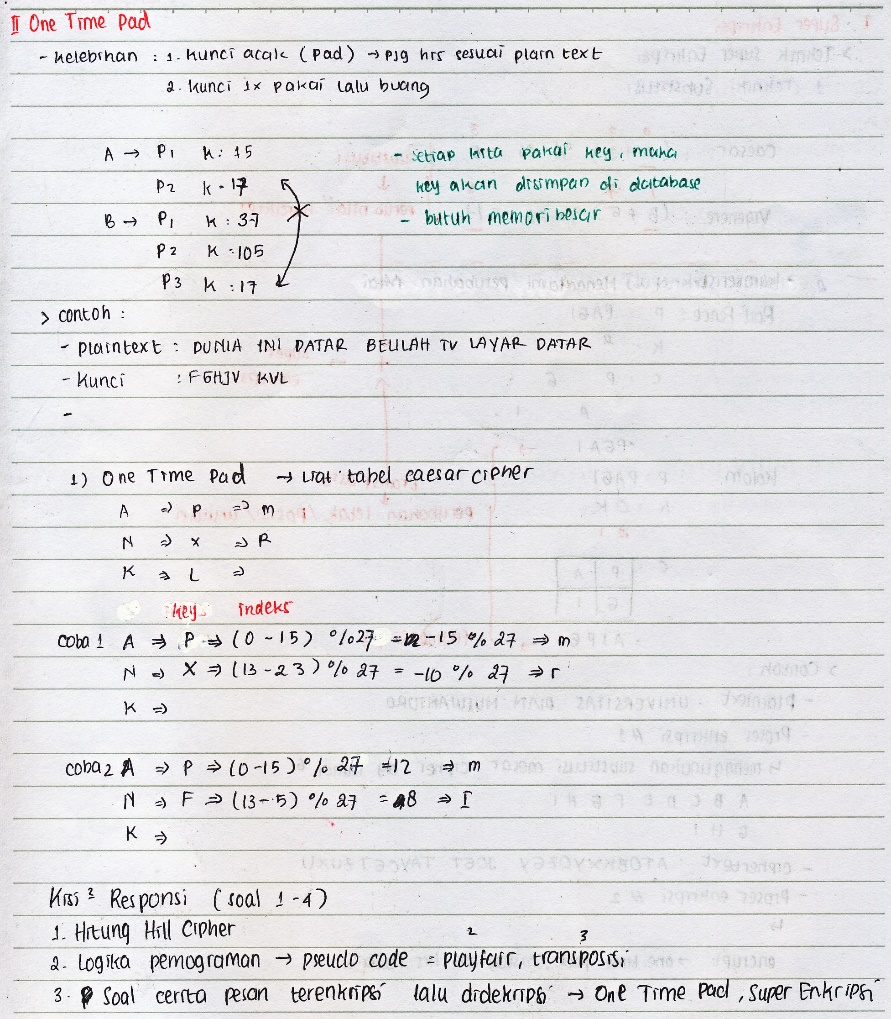 II One Time Pad
- Kelebihan : 1. Kunci acak (Pad) → pjg hrs sesuai plain text
2. Kunci 1x pakai lalu buang
A → P1 k : 15 - setiap kita pakai key, maka
P2 k - 17 key akan disimpan di database
B → P1 k : 37 - butuh memori besar
P2 k - 105
P3 k : 17
> contoh :
- plaintext : DUNIA INI DATAR BELILAH TV LAYAR DATAR
- Kunci : FGHJV KVL
-
1) One Time Pad → Liat tabel caesar cipher
A ⇒ P ⇒ m
N ⇒ X ⇒ R
K ⇒ L ⇒
key indeks
coba 1 A ⇒ P ⇒ (0 - 15) % 27 = -15 % 27 ⇒ m
N ⇒ X ⇒ (13 - 23) % 27 = -10 % 27 ⇒ r
K ⇒
coba 2 A ⇒ P ⇒ (0-15) % 27 = 12 ⇒ m
N ⇒ F ⇒ (13 - 5) % 27 = 8 ⇒ I
K ⇒
Kisi² Responsi (soal 1-4)
1. Hitung Hill Cipher
2. Logika pemograman → pseudo code = playfair, transposisi
2 3
3. Soal cerita pesan terenkripsi lalu didekripsi → One Time Pad, Super Enkripsi